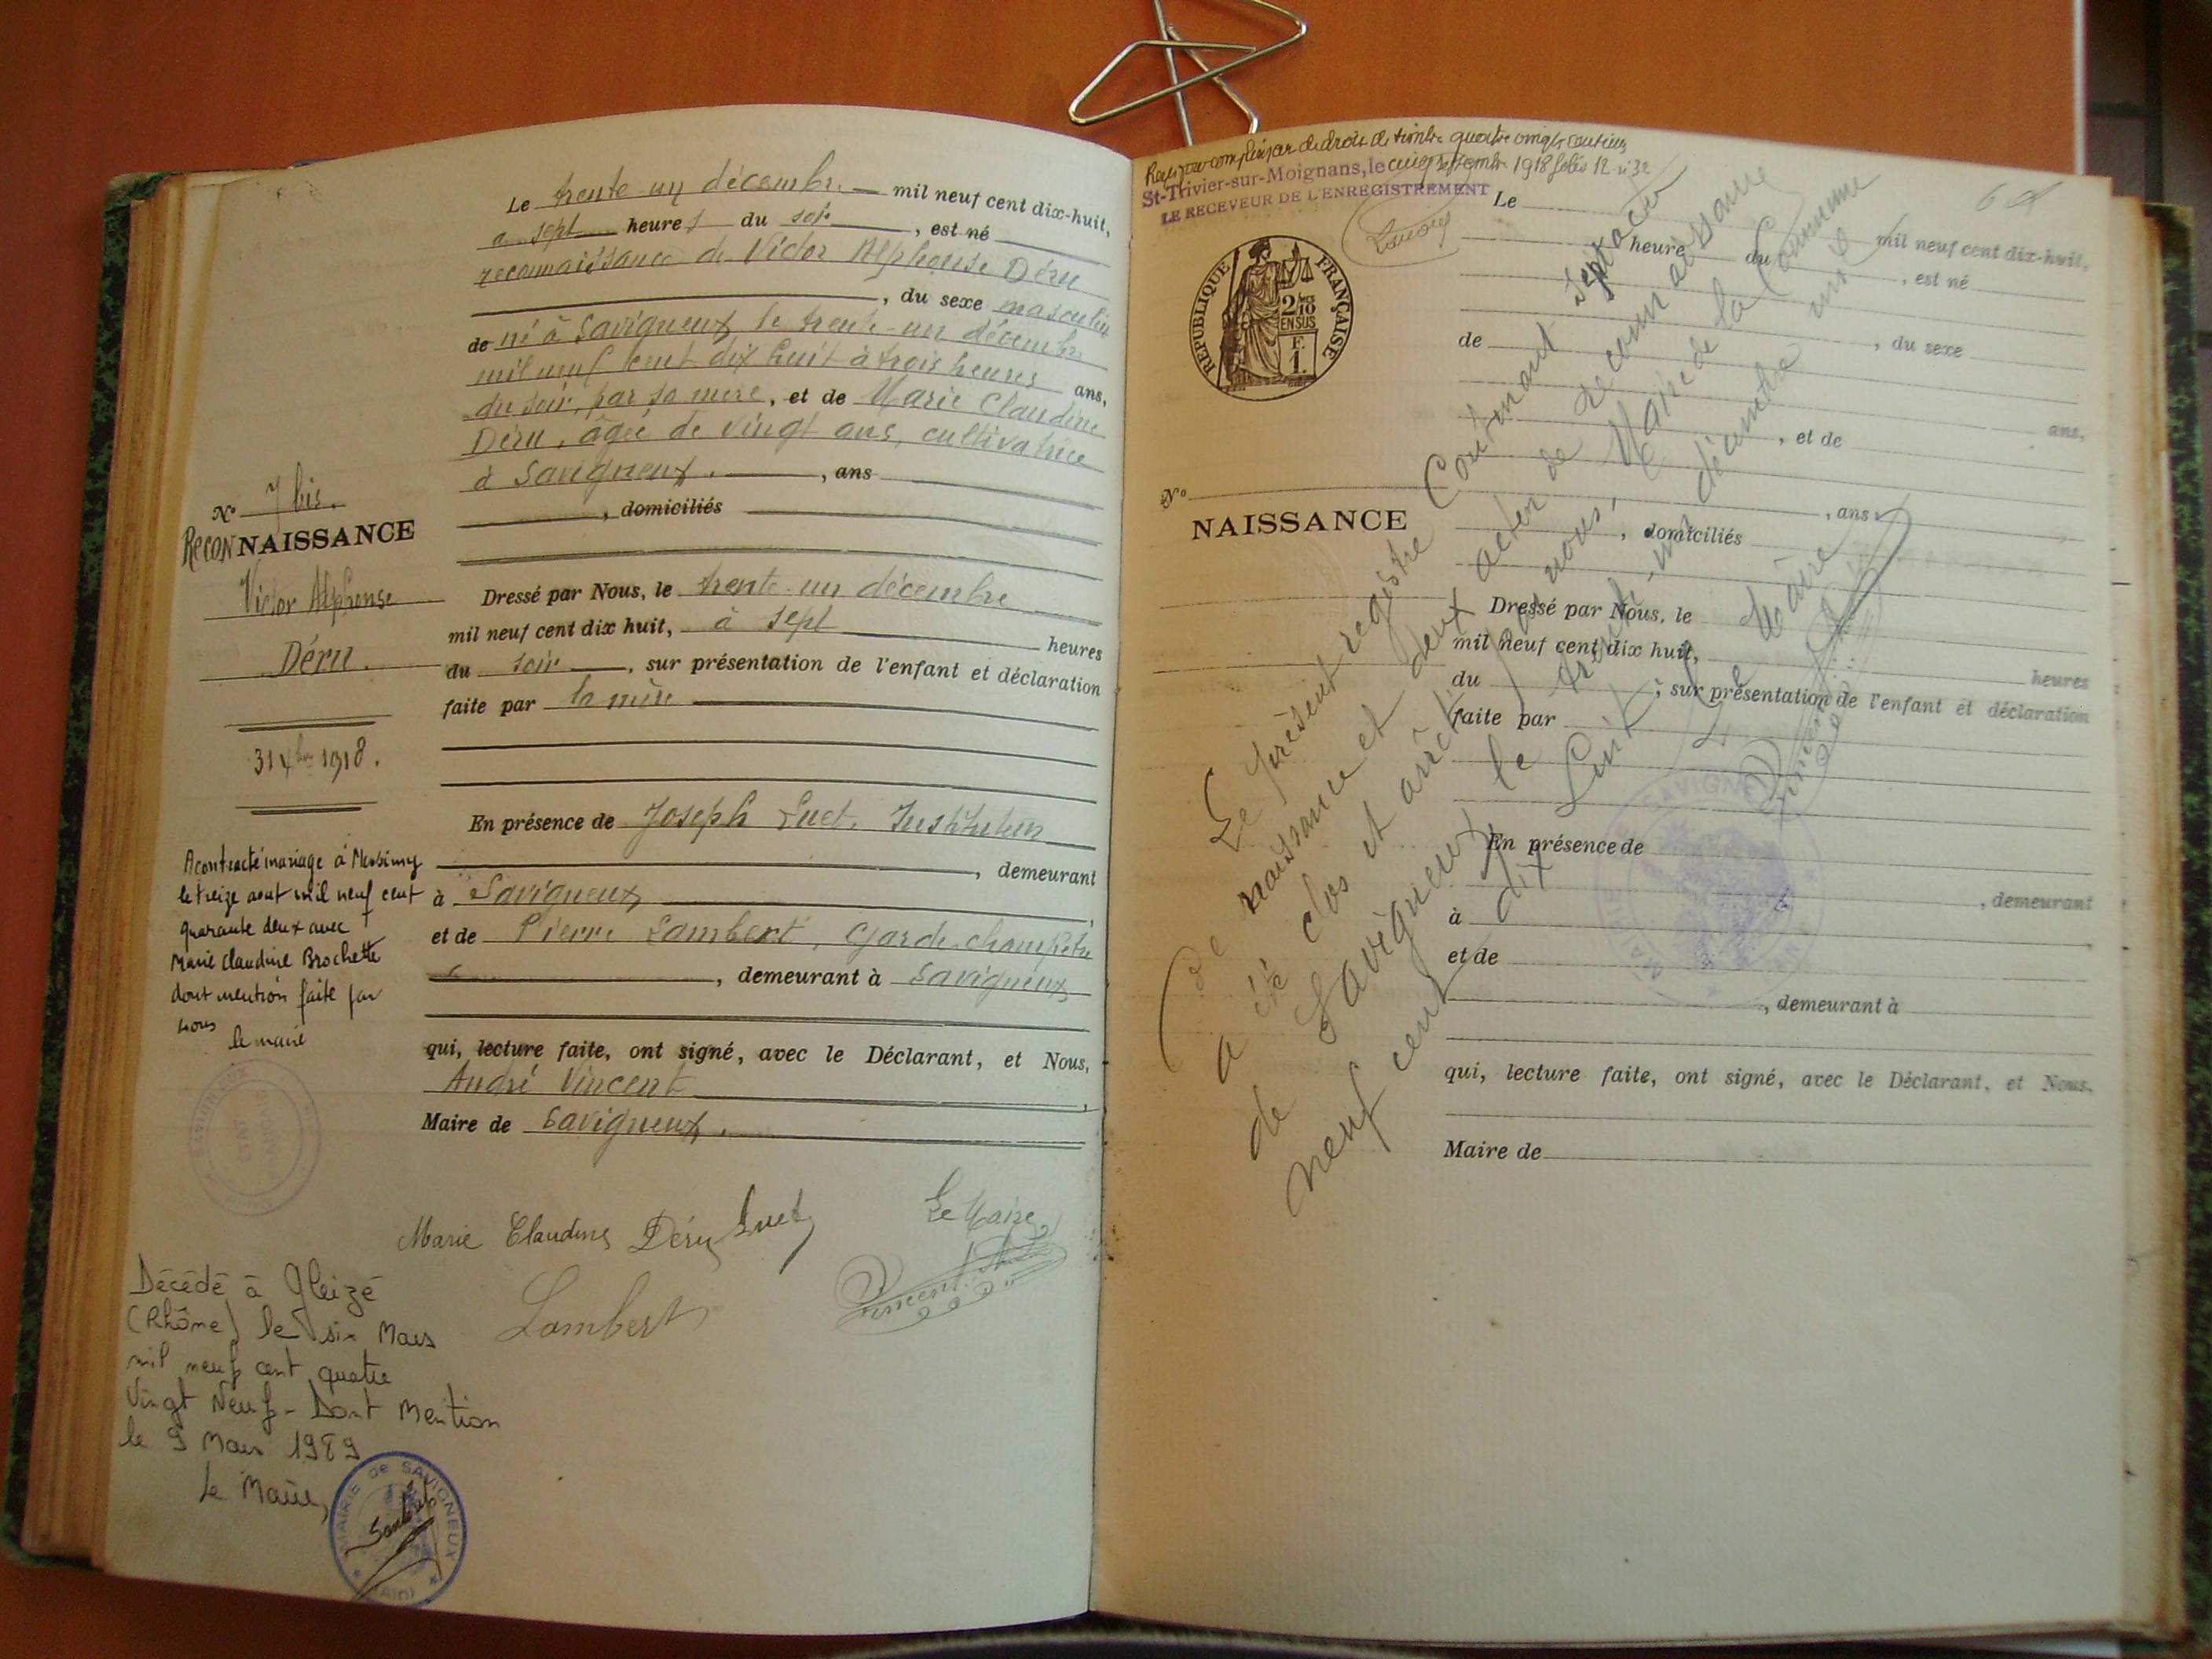 Le trente-un décembre mil neuf cent dix-huit,
a sept heures du soir, est né
reconnaissance de Victor Alphonse Déru
, du sexe masculin
de né à Savigneux le trente-un décembre
mil neuf cent dix huit à trois heures ans,
du soir, par sa mère, et de Marie Claudine
Déru, âgée de vingt ans, cultivatrice
à Savigneux. , ans
, domiciliés
N° 7 bis.
RECONNAISSANCE
Victor Alphonse
Déru.
31 Xbre 1918.
Dressé par Nous, le trente-un décembre
mil neuf cent dix huit, à sept heures
du soir, sur présentation de l'enfant et déclaration
faite par la mère
En présence de Joseph Luet, Instituteur
, demeurant
à Savigneux,
et de Pierre Lambert, Garde champêtre
, demeurant à Savigneux
qui, lecture faite, ont signé, avec le Déclarant, et Nous,
André Vincent,
Maire de Savigneux.
A contracté mariage à
le treize aout mil neuf cent
quarante deux avec
Marie Claudine Brochette
dont mention faite par
nous
le maire
Marie Claudine Déru Luet
Le Maire
Lambert
Vincent
Décédé à Gleizé
(Rhône) le six Mars
mil neuf cent quatre
Vingt Neuf - Dont Mention
le 9 Mars 1989
Le Maire,
MAIRIE de SAVIGNEUX
(Ain)
de droit de timbre quatre vingts centimes
St-Trivier-sur-Moignans, le cinq septembre 1918 folio 12 n° 32
LE RECEVEUR DE L'ENREGISTREMENT
REPUBLIQUE FRANÇAISE
2/10 EN SUS
F. 1.
Le mil neuf cent dix-huit,
heure du , est né
, du sexe
de
ans,
, et de
, ans
, domiciliés
N°
NAISSANCE
Dressé par Nous, le
mil neuf cent dix huit, heures
du , sur présentation de l'enfant et déclaration
faite par
En présence de
, demeurant
à
et de
, demeurant à
qui, lecture faite, ont signé, avec le Déclarant, et Nous,
Maire de
Le présent registre Contenant sept actes
de naissance et deux actes de reconnaissance
a été clos et arrêté par nous, Maire de la Commune
de Savigneux le trente-un décembre mil
neuf cent dix huit
Le Maire
Vincent